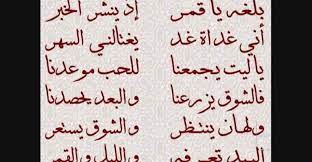 بلغه يا قمر إذ ينشر الخبر
أني غداة غد يغتالني السهر
يا ليت يجمعنا للحب موعدنا
فالشوق يزرعنا والبعد يحصدنا
ولهان ينتظر والشوق يستعر
البيد تعرفني والليل والقمر